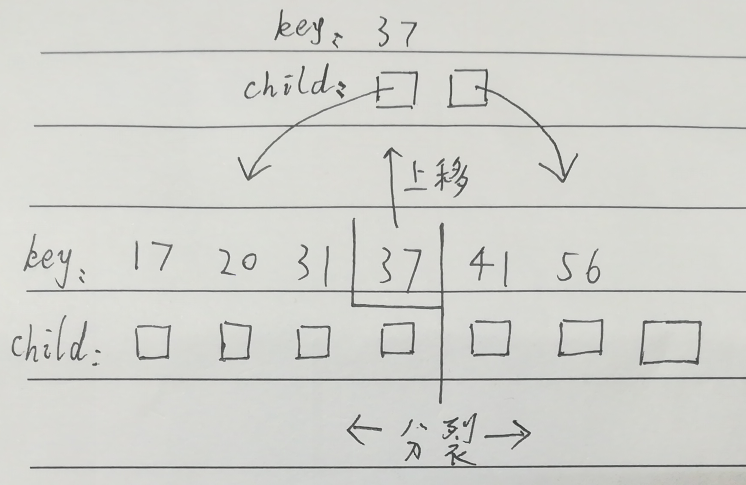 key: 37
child:
上移
key: 17 20 31 37 41 56
child:
分裂